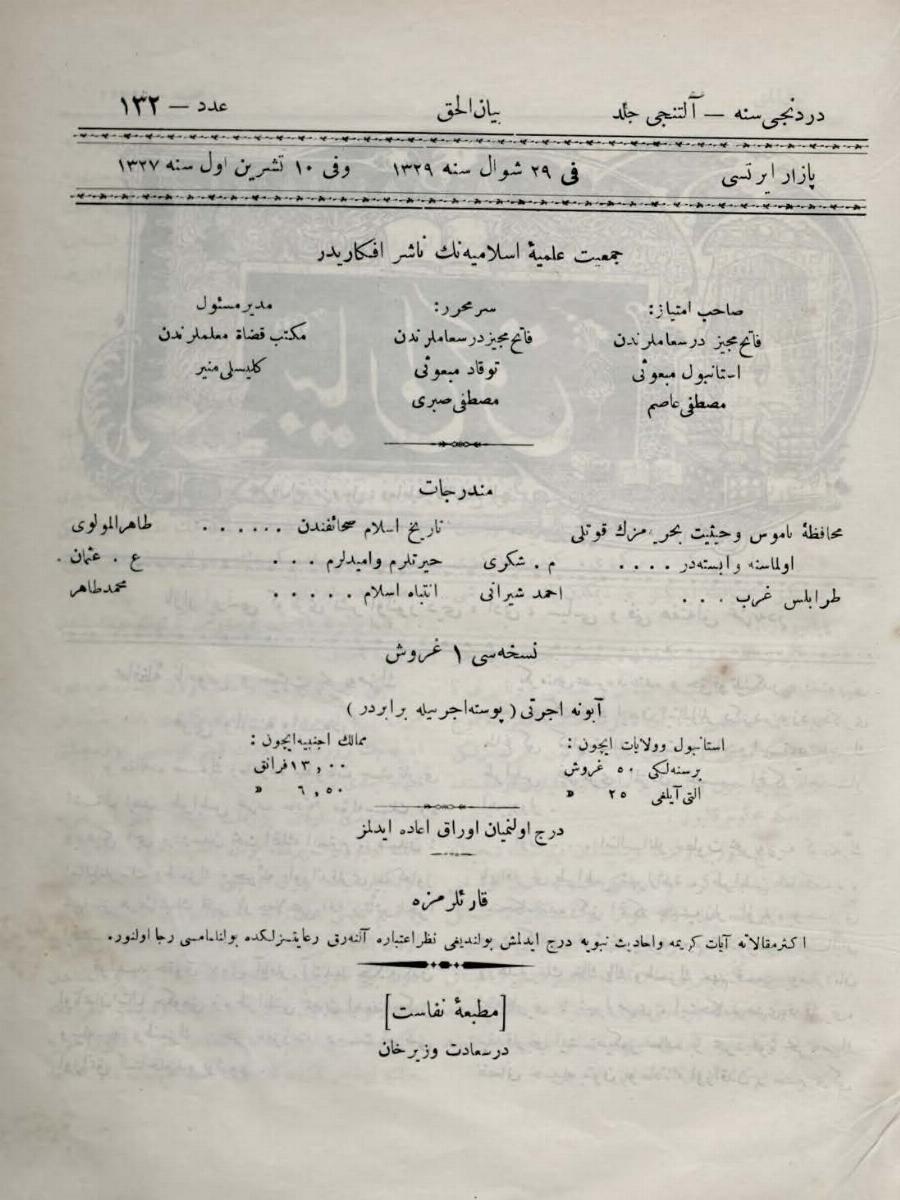 دردنجی سنه — آلتنجی جلد بیان الحق عدد — ١٣٢
پازار ایرتسی فی ٢٩ شوال سنه ١٣٢٩ وفی ١٠ تشرین اول سنه ١٣٢٧
جمعیت علمیهٔ اسلامیه‌نك ناشر افكاریدر
صاحب امتیاز:
فاتح مجیز درسعاملرندن
استانبول مبعوثی
مصطفی عاصم
سر محرر:
فاتح مجیز درسعاملرندن
توقاد مبعوثی
مصطفی صبری
مدیر مسئول
مكتب قضاة معلملرندن
كلیسلی منیر
مندرجات
محافظهٔ ناموس وحیثیت بحریه‌مزك قوتلی
اولماسنه وابسته‌در . . . . م . شكری
طرابلس غرب . . . احمد شیرانی
تاریخ اسلام صحائفندن . . . . . . طاهر المولوی
حیرتلرم وامیدلرم . . . ع . عثمان .
انتباه اسلام . . . . . محمد طاهر
نسخه‌سی ١ غروش
آبونه اجرتی ( پوسته اجرتیله برابردر )
استانبول وولایات ایچون :
برسنه‌لكی ٥٠ غروش
التی آیلغی ٢٥ »
ممالك اجنبیه ایچون :
١٣,٠٠ فرانق
٦,٥٠ »
درج اولنمیان اوراق اعاده ایدلمز
قارئلرمزه
اكثر مقالاته آیات كریمه واحادیث نبویه درج ایدلمش بولندیغی نظر اعتباره آلنه‌رق رعایتسزلكده بولنامامسی رجا اولنور.
[ مطبعهٔ نفاست ]
درسعادت وزیرخان